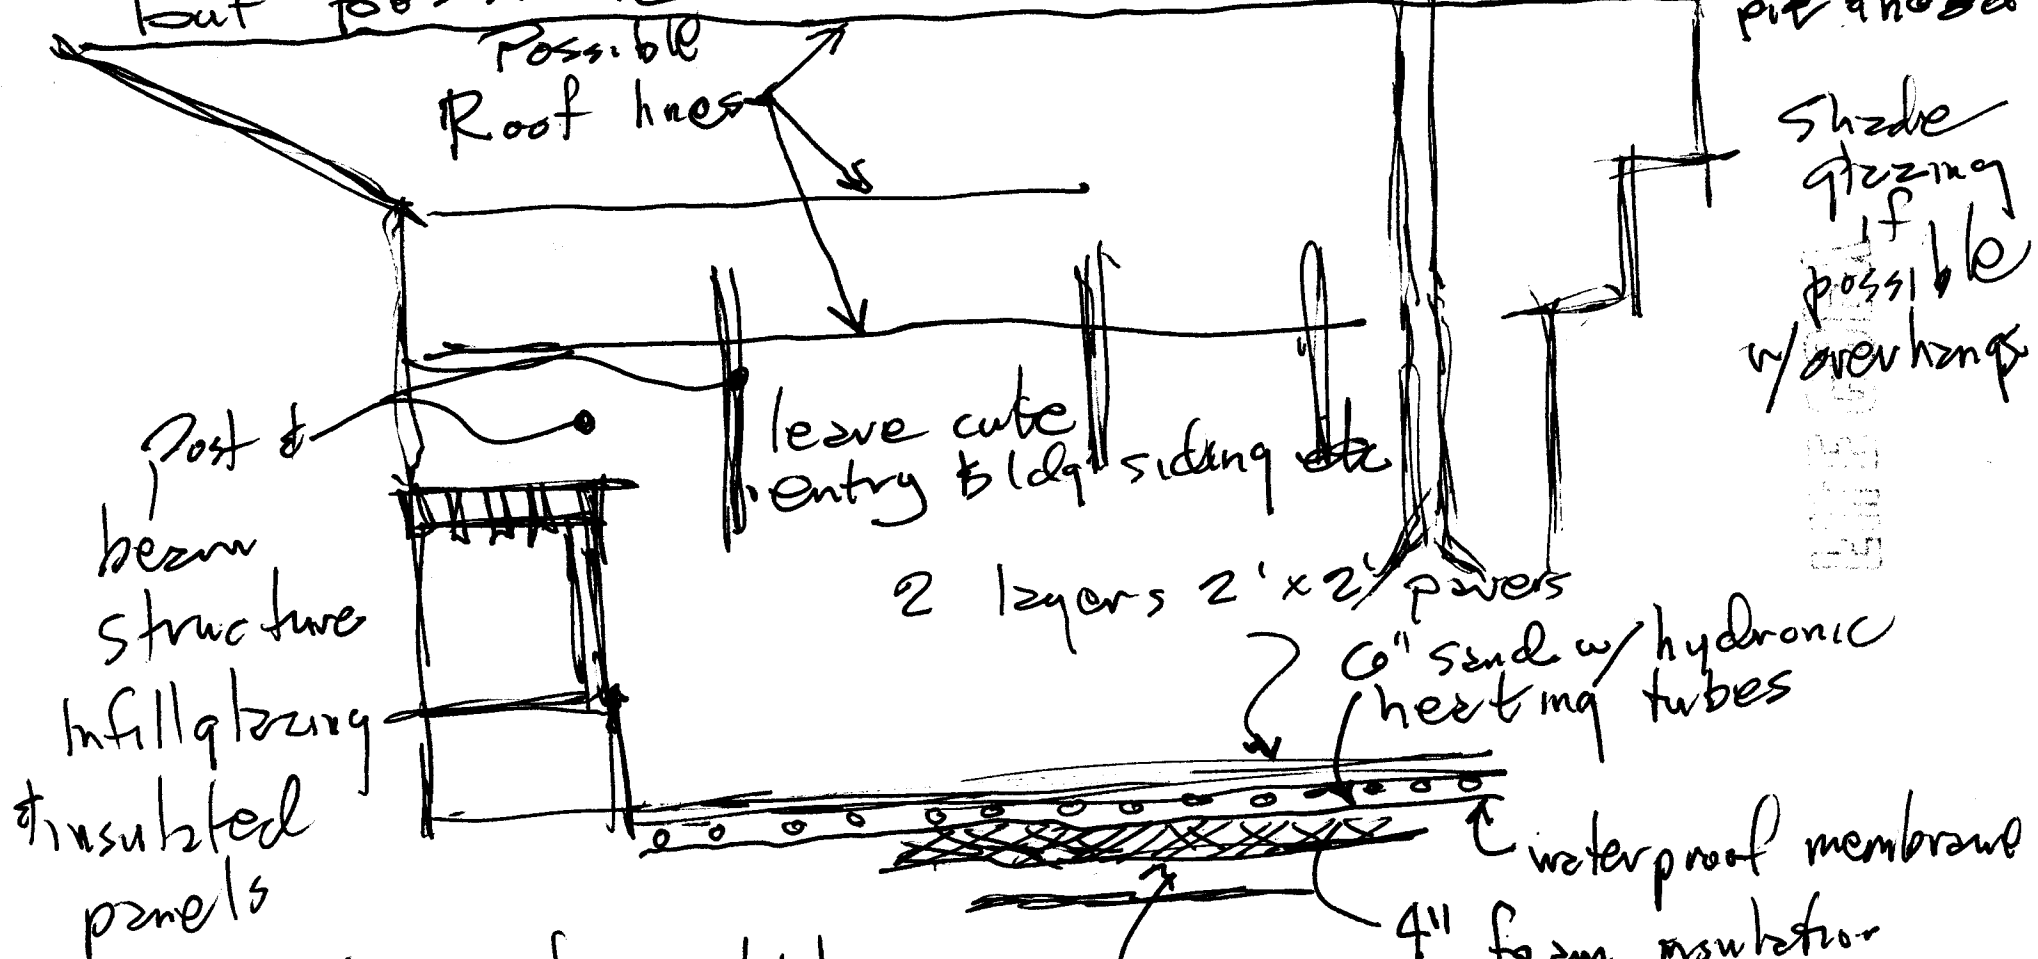 but
Possible
Roof lines
Shade
glazing
if
possible
w/overhangs
Post &
beam
structure
Infill glazing
& insulated
panels
leave cute
entry bldg siding etc
2 layers 2'x2' pavers
6" sand w/ hydronic
heating tubes
waterproof membrane
4" foam insulation